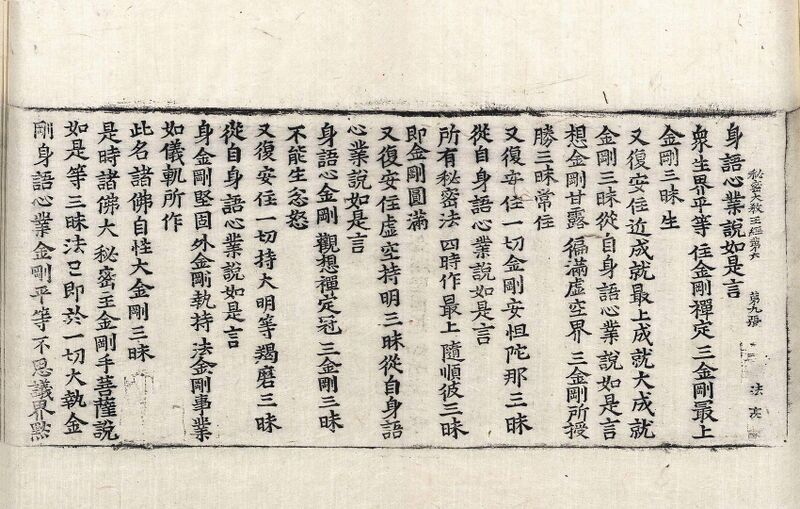 秘密大教王經第六 第九張 法
身語心業說如是言
衆生界平等 住金剛禪定 三金剛最上
金剛三昧生
又復安住近成就最上成就大成就
金剛三昧從自身語心業說如是言
想金剛甘露 徧滿虛空界 三金剛所授
勝三昧常住
又復安住一切金剛安怛陀那三昧
從自身語心業說如是言
所有秘密法 四時作最上 隨順彼三昧
即金剛圓滿
又復安住虛空持明三昧從自身語
心業說如是言
身語心金剛 觀想禪定冠 三金剛三昧
不能生忿怒
又復安住一切持大明等羯磨三昧
從自身語心業說如是言
身金剛堅固 外金剛執持 法金剛事業
如儀軌所作
此名諸佛自性大金剛三昧
是時諸佛大秘密主金剛手菩薩說
如是等三昧法已即於一切大執金
剛身語心業金剛平等不思議界默